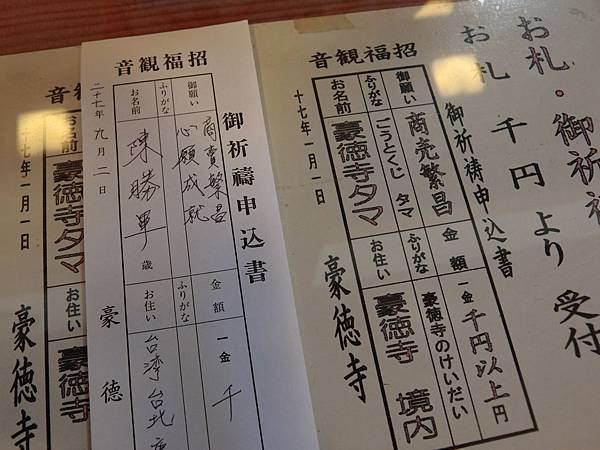 お札・御祈
お札 千円より 受付
音観福招
御祈祷申込書
御願い 商売繁昌 金額 一金 千円以上円
ふりがな ごうとくじ タマ ふりがな 豪徳寺のけいだい
お名前 豪徳寺タマ お住い 豪徳寺 境内
十七年一月一日
豪徳寺
音観福招
御祈禱申込書
御願い 商賣繁昌 心願成就 金額 一金 千
ふりがな ふりがな
お名前 陳勝 歳 お住い 台湾台北
二十七年 九月 二日
豪 德
音観
お名前 豪徳寺タマ お住い 豪徳
七年一月一日
豪徳寺